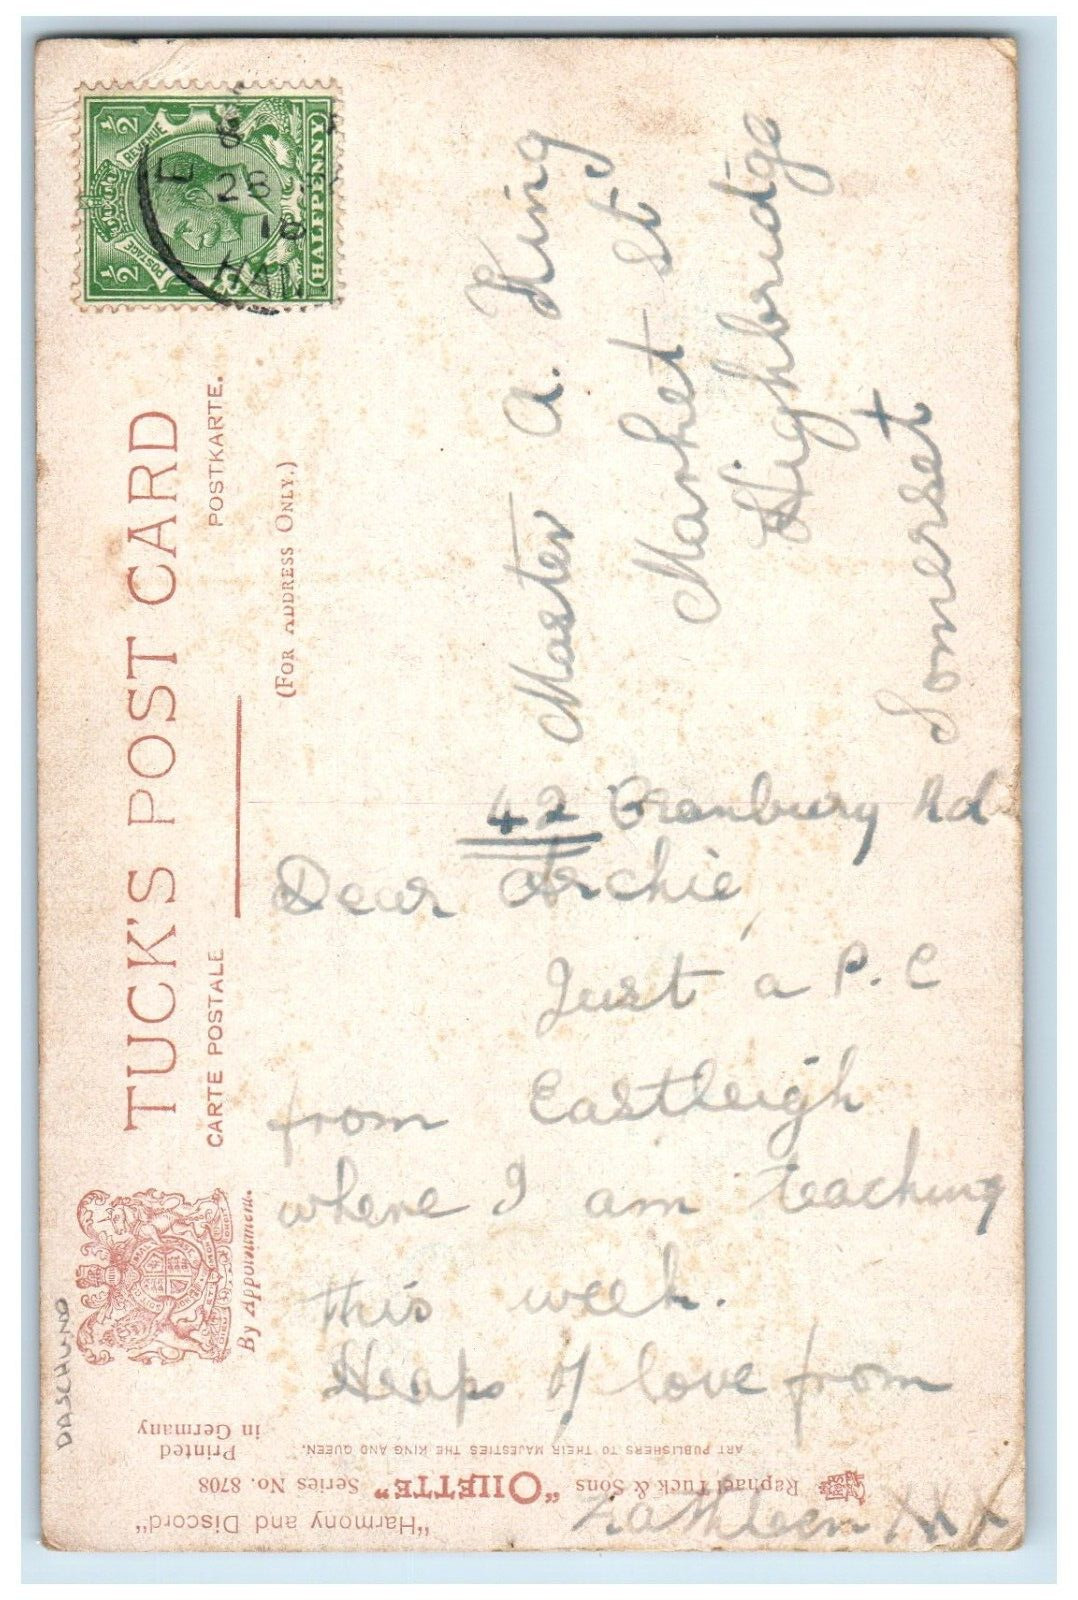 TUCK'S POST CARD
CARTE POSTALE
POSTKARTE.
(FOR ADDRESS ONLY.)
By Appointment.
½ POSTAGE REVENUE ½
HALFPENNY
18
Master A. King
Market St
Highbridge
Somerset
42 Cranbury Rd
Dear Archie,
Just a P.C
from Eastleigh
where I am teaching
this week.
Heaps of love from
Kathleen XXX
DASCHUND
"Harmony and Discord"
Raphael Tuck & Sons "OILETTE" Series No. 8708
ART PUBLISHERS TO THEIR MAJESTIES THE KING AND QUEEN.
Printed
in Germany